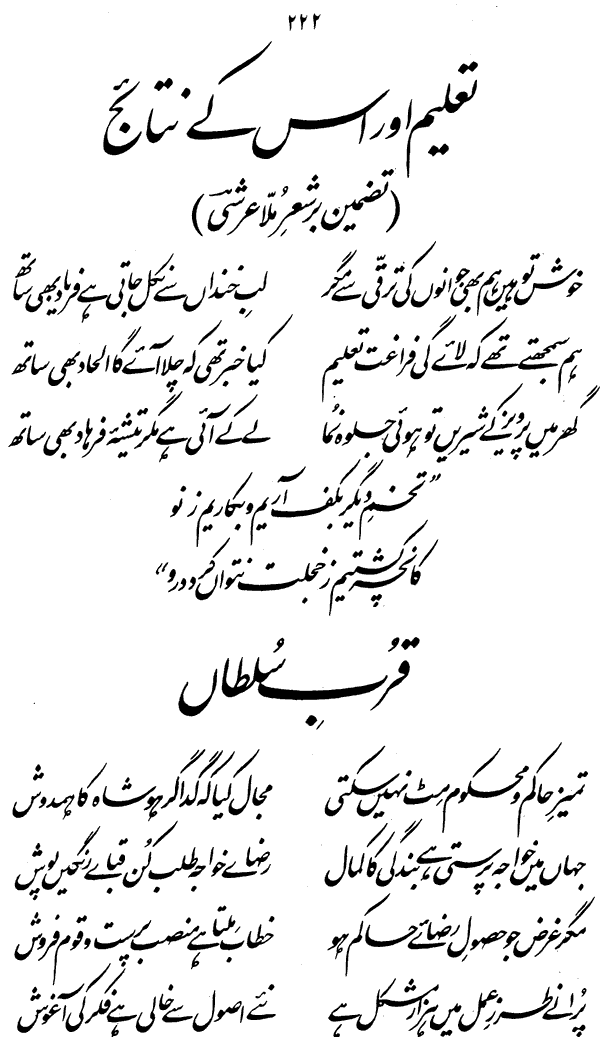 ۲۲۲
تعلیم اور اس کے نتائج
(تضمین بر شعرِ مُلّا عرشی)
خوش تو ہیں ہم بھی جوانوں کی ترقّی سے مگر لبِ خنداں سے نکل جاتی ہے فریاد بھی ساتھ
ہم سمجھتے تھے کہ لائے گی فراغت تعلیم کیا خبر تھی کہ چلا آئے گا الحاد بھی ساتھ
گھر میں پرویز کے شیریں تو ہوئی جلوہ نُما لے کے آئی ہے مگر تیشۂ فرہاد بھی ساتھ
”تخمِ دیگر بکف آریم و بکاریم ز نو
کانچہ کشتیم ز خجلت نتواں کرد درو“
قُربِ سُلطاں
تمیزِ حاکم و محکوم مِٹ نہیں سکتی مجال کیا کہ گداگر ہو شاہ کا ہمدوش
جہاں میں خواجہ پرستی ہے بندگی کا کمال رضاے خواجہ طلب کُن قباے رنگیں پوش
مگر غرض جو حصولِ رضائے حاکم ہو خطاب مِلتا ہے منصب پرست و قوم فروش
پُرانے طرزِ عمل میں ہزار مشکل ہے نئے اصول سے خالی ہے فکر کی آغوش